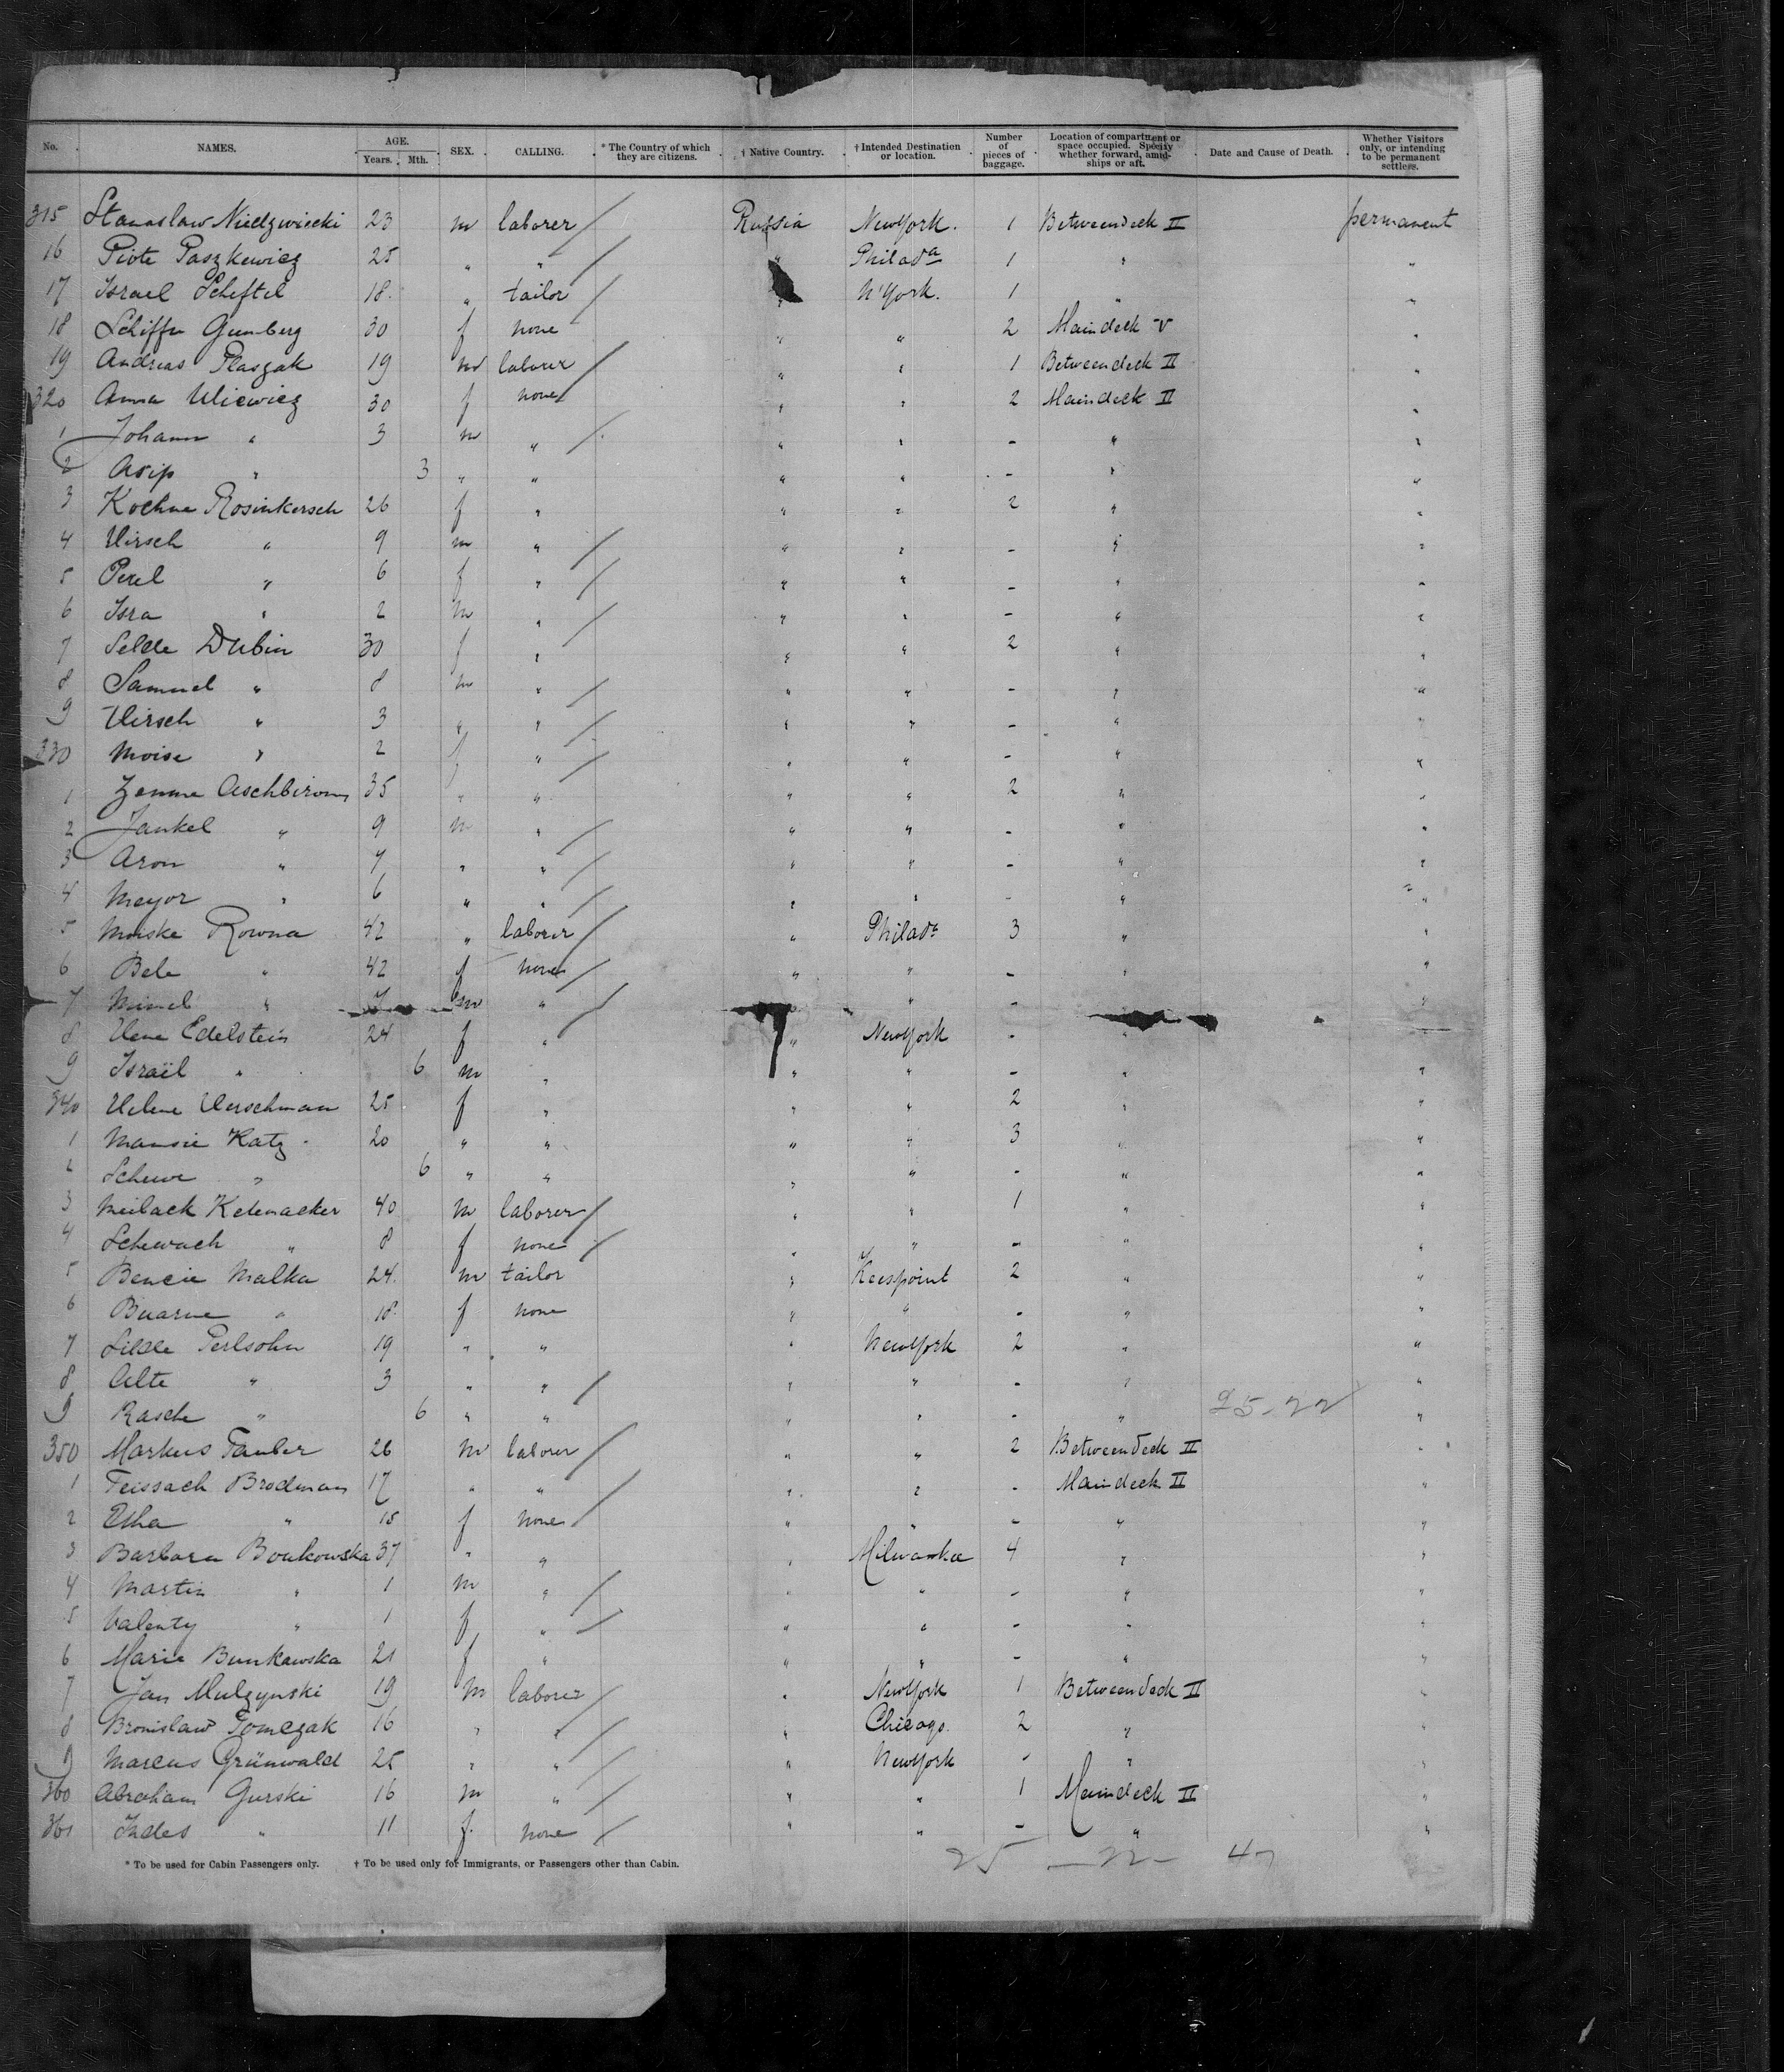 No. NAMES. AGE. Years. Mth. SEX. CALLING. * The Country of which they are citizens. † Native Country. † Intended Destination or location. Number of pieces of baggage. Location of compartment or space occupied. Specify whether forward, amidships or aft. Date and Cause of Death. Whether Visitors only, or intending to be permanent settlers.
315 Stanaslaw Niedzwiecki 23 m laborer Russia NewYork. 1 Betweendeck II permanent
16 Piote Paszkewicz 25 " " " Philada 1 " "
17 Israel Scheftel 18 " tailor " N'York. 1 " "
18 Schiffre Gumberg 30 f none " " 2 Maindeck V "
19 Andreas Plaszak 19 m laborer " " 1 Betweendeck II "
320 Anna Ulicwicz 30 f none " " 2 Maindeck II "
1 Johann " 3 m " " " - " "
2 Asip " 3 " " " " - " "
3 Kochne Rosinkersch 26 f " " " 2 " "
4 Hirsch " 9 m " " " - " "
5 Perel " 6 f " " " - " "
6 Isra " 2 m " " " - " "
7 Selde Dubin 30 f " " " 2 " "
8 Samuel " 8 m " " " - " "
9 Hirsch " 3 " " " " - " "
330 Moise " 2 f " " " - " "
1 Zenme Aschbirom 35 " " " " 2 " "
2 Jankel " 9 m " " " - " "
3 Aron " 7 " " " " - " "
4 Meyor " 6 " " " " - " "
5 Moiske Rowna 42 " laborer " Philada 3 " "
6 Bele " 42 f none " " - " "
7 Mimel " 7 m " " - "
8 Hene Edelstein 24 f " " NewYork - "
9 Israïl " 6 m " " " - " "
340 Helene Herschman 25 f " " " 2 " "
1 Mansie Katz 20 " " " " 3 " "
2 Schewe " 6 " " " " - " "
3 Meilach Ketemacker 40 m laborer " " 1 " "
4 Schewach " 8 f none " " - " "
5 Bencie Malka 24 m tailor " Keespoint 2 " "
6 Buarne " 18 f none " " - " "
7 Lilde Perlsohn 19 " " " NewYork 2 " "
8 Alte " 3 " " " " - " "
9 Rasche " 6 " " " " - " 25-22 "
350 Markus Tauber 26 m laborer " " 2 Betweendeck II "
1 Teissach Brodman 17 " " " " - Maindeck II "
2 Etha " 15 f none " " - " "
3 Barbara Boukowska 37 " " " Milwaukee 4 " "
4 Martin " 1 m " " " - " "
5 Valenty " 1 f " " " - " "
6 Marie Bunkawska 21 f " " " - " "
7 Jan Mulzynski 19 m laborer " NewYork 1 Betweendeck II "
8 Bronislaw Tomczak 16 " " " Chicago 2 " "
9 Marcus Grünwald 25 " " " NewYork - " "
360 Abraham Gurski 16 m " " " 1 Maindeck II "
361 Indes " 11 f. none " " - " "
* To be used for Cabin Passengers only. † To be used only for Immigrants, or Passengers other than Cabin.
25 - 22 - 47